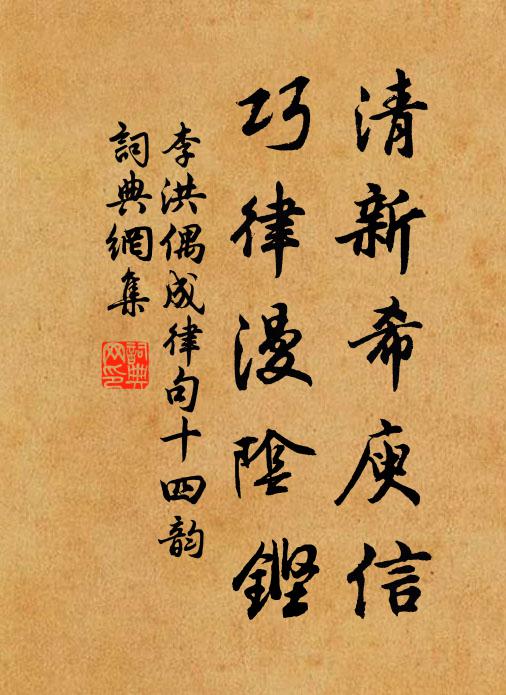 清新希庾信
巧律漫陰鏗
李洪偶成律句十四韵
詞典網集
詞典網印